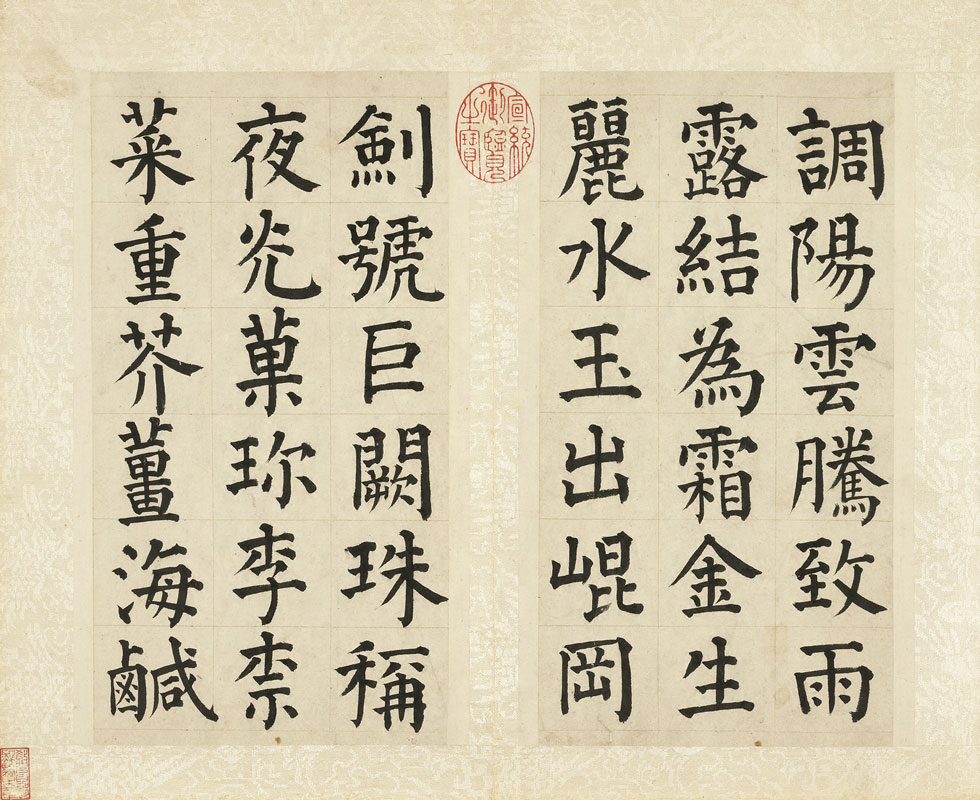 調陽雲騰致雨
露結為霜金生
麗水玉出崐岡
宣統御覽之寶
劍號巨闕珠稱
夜光菓珎李柰
菜重芥薑海鹹